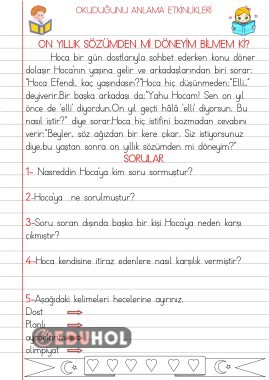 OKUDUĞUNU ANLAMA ETKİNLİKLERİ
ON YILLIK SÖZÜMDEN Mİ DÖNEYİM BİLMEM Kİ?
Hoca bir gün dostlarıyla sohbet ederken konu döner
dolaşır Hoca'nın yaşına gelir ve arkadaşlarından biri sorar:
"Hoca Efendi, kaç yaşındasın?"Hoca hiç düşünmeden;"Elli.."
deyiverir.Bir başka arkadaşı da:"Yahu Hocam! Sen on yıl
önce de 'elli' diyordun.On yıl geçti hâlâ 'elli' diyorsun. Bu
nasıl iştir?" diye sorar.Hoca hiç istifini bozmadan cevabını
verir:"Beyler, söz ağızdan bir kere çıkar. Siz istiyorsunuz
diye,bu yaştan sonra on yıllık sözümden mi döneyim?"
SORULAR
1- Nasreddin Hoca'ya kim soru sormuştur?
2-Hoca'ya ne sorulmuştur?
3-Soru soran dışında başka bir kişi Hoca'ya neden karşı
çıkmıştır?
4-Hoca kendisine itiraz edenlere nasıl karşılık vermiştir?
5-Aşağıdaki kelimeleri hecelerine ayırınız.
Dost
Planlı
EDUHOL
olimpiyat